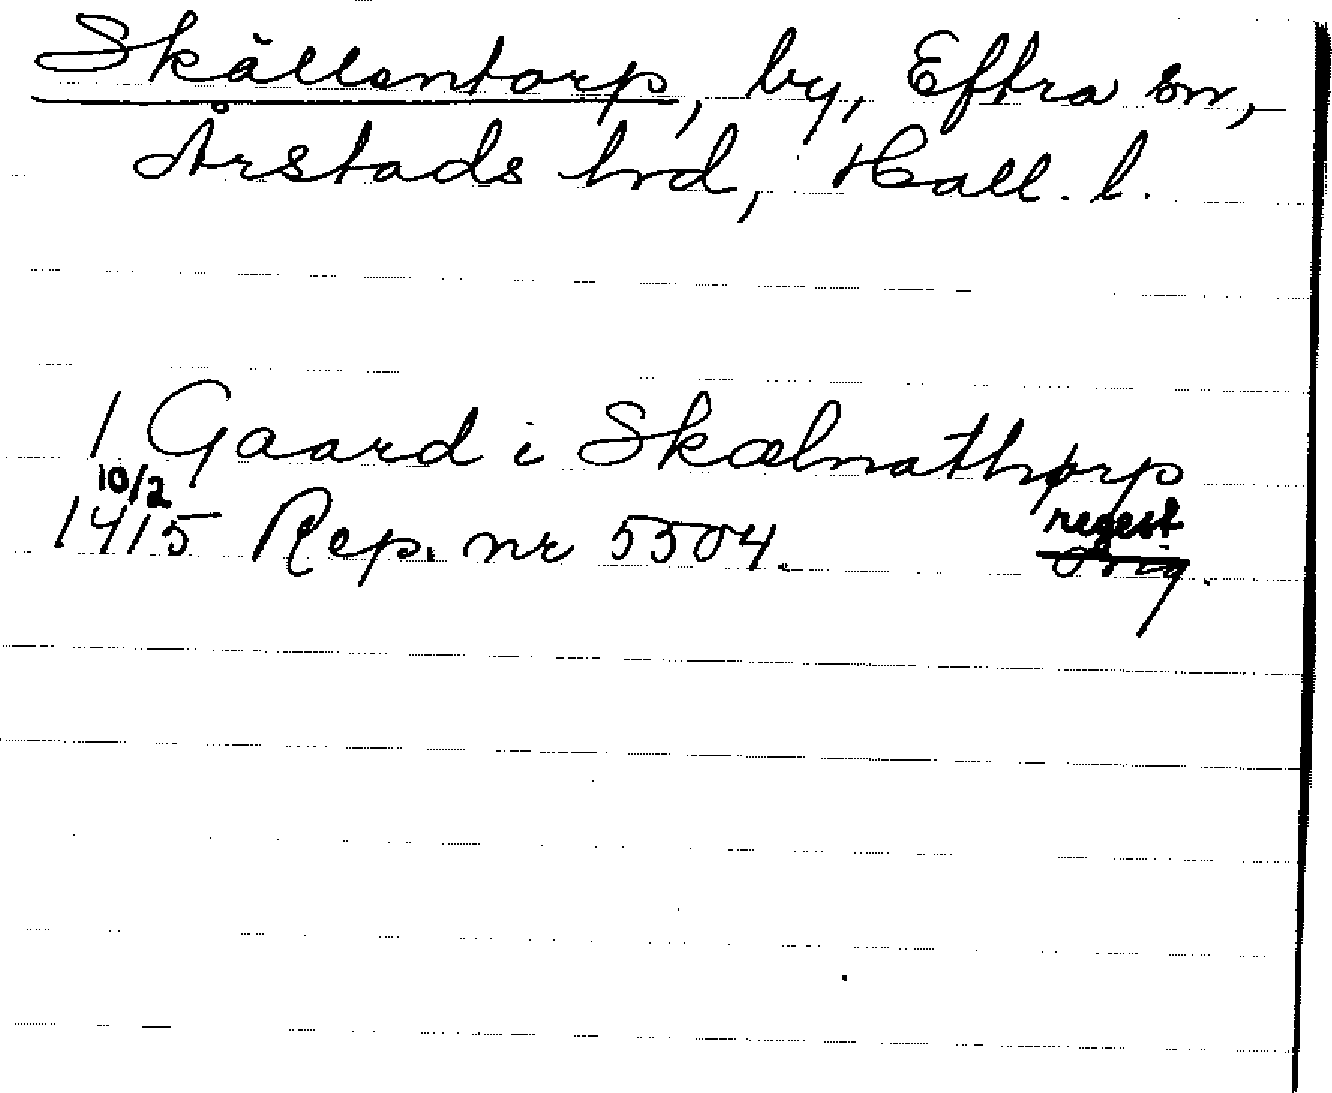 Skällentorp, by, Eftra sn,
Årstads hrd, Hall. l.
1 Gaard i Skælnathorp
10/2
1415 Rep. nr 5504. regest
Orig.